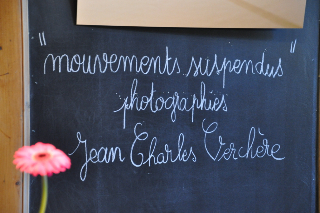 "mouvements suspendus"
photographies
Jean Charles Verchère